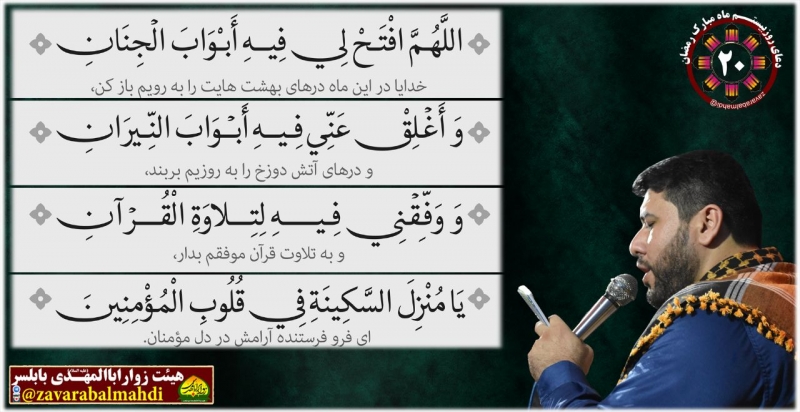 دعای روز بیستم ماه مبارک رمضان
۲۰
@zavarabalmahdi
اللّهُمَّ افْتَحْ لِي فِيهِ أَبْوَابَ الْجِنَانِ
خدایا در این ماه درهای بهشت هایت را به رویم باز کن،
وَ أَغْلِقْ عَنِّي فِيهِ أَبْوَابَ النِّيرَانِ
و درهای آتش دوزخ را به روزیم بربند،
وَ وَفِّقْنِي فِيهِ لِتِلاوَةِ الْقُرْآنِ
و به تلاوت قرآن موفقم بدار،
يَا مُنْزِلَ السَّكِينَةِ فِي قُلُوبِ الْمُؤْمِنِينَ
ای فرو فرستنده آرامش در دل مؤمنان.
هیئت زوار اباالمهدی بابلسر
@zavarabalmahdi